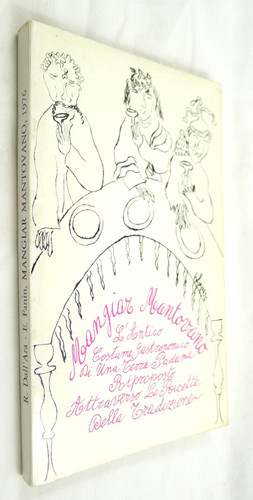 R. Dall'Ara - E. Fanin, MANGIAR MANTOVANO, 1976
Mangiar Mantovano
L'Antico
Costume Gastronomico
Di Una Terra Padana
Riproposto
Attraverso Le Ricette
Della Tradizione